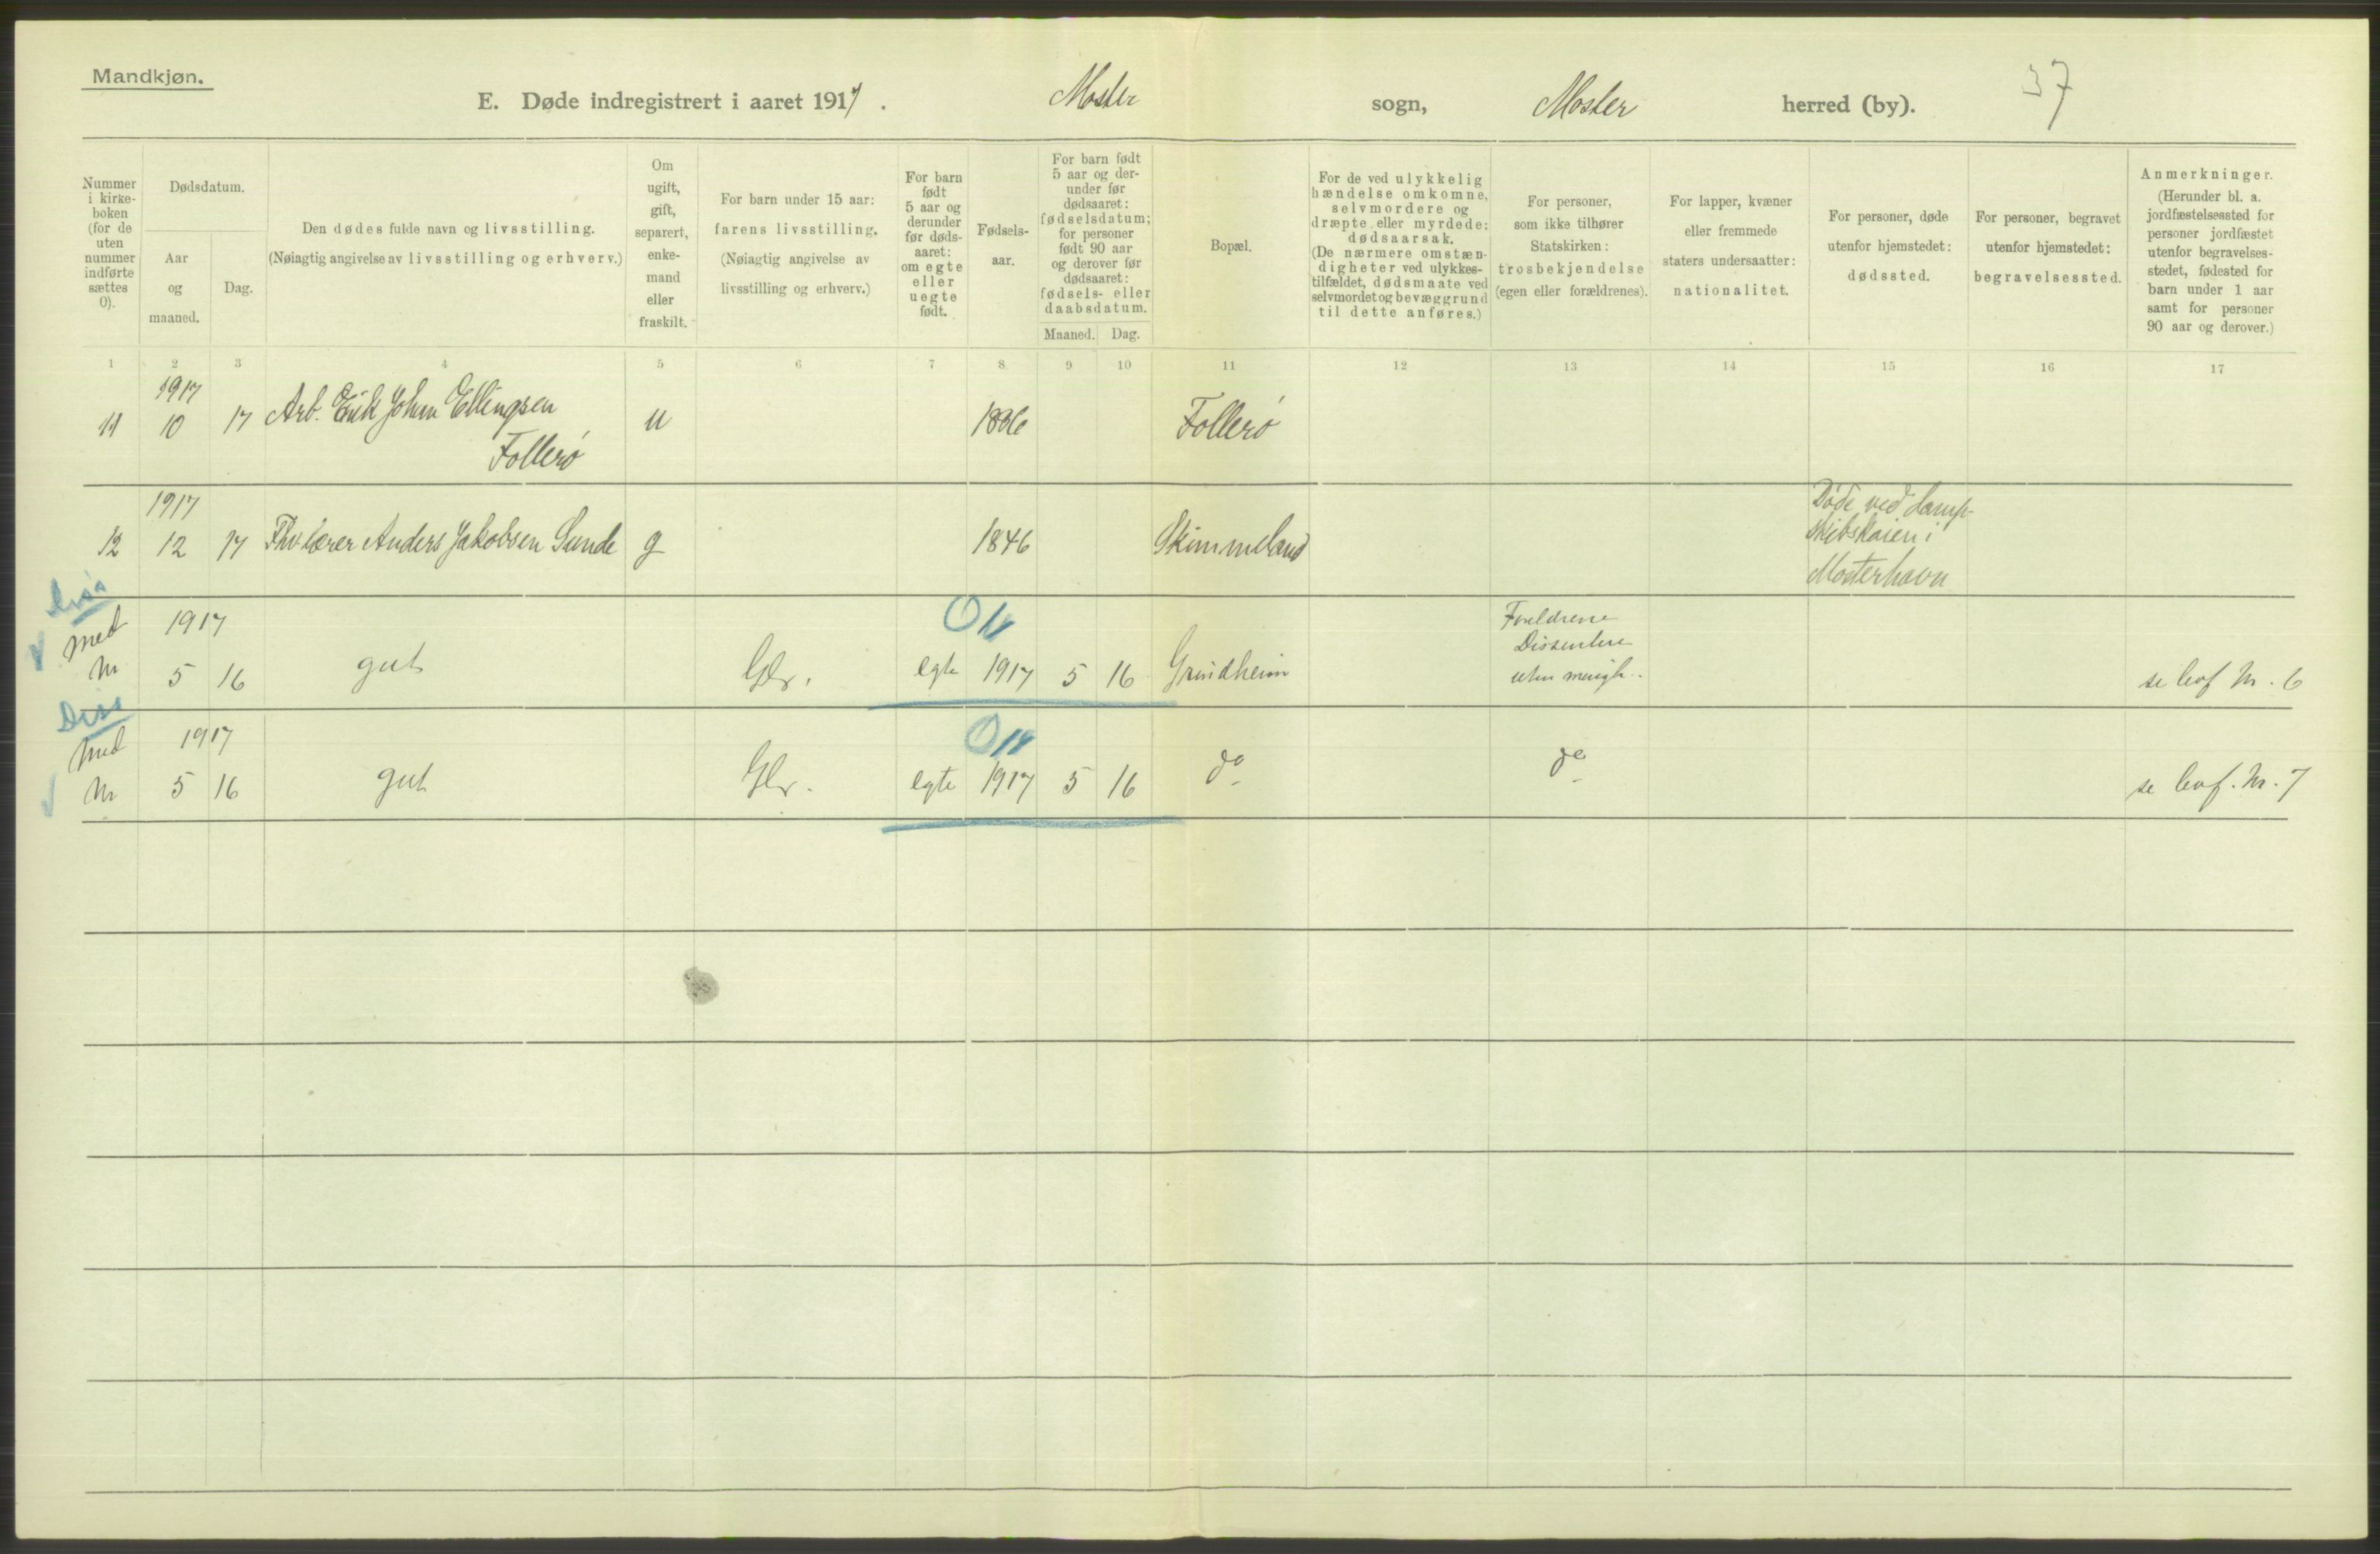 Mandkjøn.
E. Døde indregistrert i aaret 1917. Moster sogn, Moster herred (by). 37
Nummer i kirkeboken (for de uten nummer indførte sættes 0).
Dødsdatum.
Aar og maaned.
Dag.
Den dødes fulde navn og livsstilling.
(Nøiagtig angivelse av livsstilling og erhverv.)
Om ugift, gift, separert, enkemand eller fraskilt.
For barn under 15 aar: farens livsstilling. (Nøiagtig angivelse av livsstilling og erhverv.)
For barn født 5 aar og derunder før dødsaaret: om egte eller uegte født.
Fødselsaar.
For barn født 5 aar og derunder før dødsaaret: fødselsdatum; for personer født 90 aar og derover før dødsaaret: fødsels- eller daabsdatum.
Maaned. Dag.
Bopæl.
For de ved ulykkelig hændelse omkomne, selvmordere og dræpte eller myrdede: dødsaarsak. (De nærmere omstændigheter ved ulykkestilfældet, dødsmaate ved selvmordet og bevæggrund til dette anføres.)
For personer, som ikke tilhører Statskirken: trosbekjendelse (egen eller forældrenes).
For lapper, kvæner eller fremmede staters undersaatter: nationalitet.
For personer, døde utenfor hjemstedet: dødssted.
For personer, begravet utenfor hjemstedet: begravelsessted.
Anmerkninger. (Herunder bl. a. jordfæstelsessted for personer jordfæstet utenfor begravelsesstedet, fødested for barn under 1 aar samt for personer 90 aar og derover.)
1 2 3 4 5 6 7 8 9 10 11 12 13 14 15 16 17
1917
11 10 17 Arb. Erik Johan Ellingsen u Follerø
Follerø
1917
12 12 17 Fhv lærer Anders Jakobsen Sunde g 1846 Skimmeland Døde ved damp-
skibskaien i
Mosterhavn
Diss
Med 1917 Foreldrene
Dissentere
Nr 5 16 gut Gbr. egte 1917 5 16 Grindheim uten menigh. se levf Nr. 6
Diss
Med 1917
Nr 5 16 gut Gbr. egte 1917 5 16 do do se levf. Nr. 7